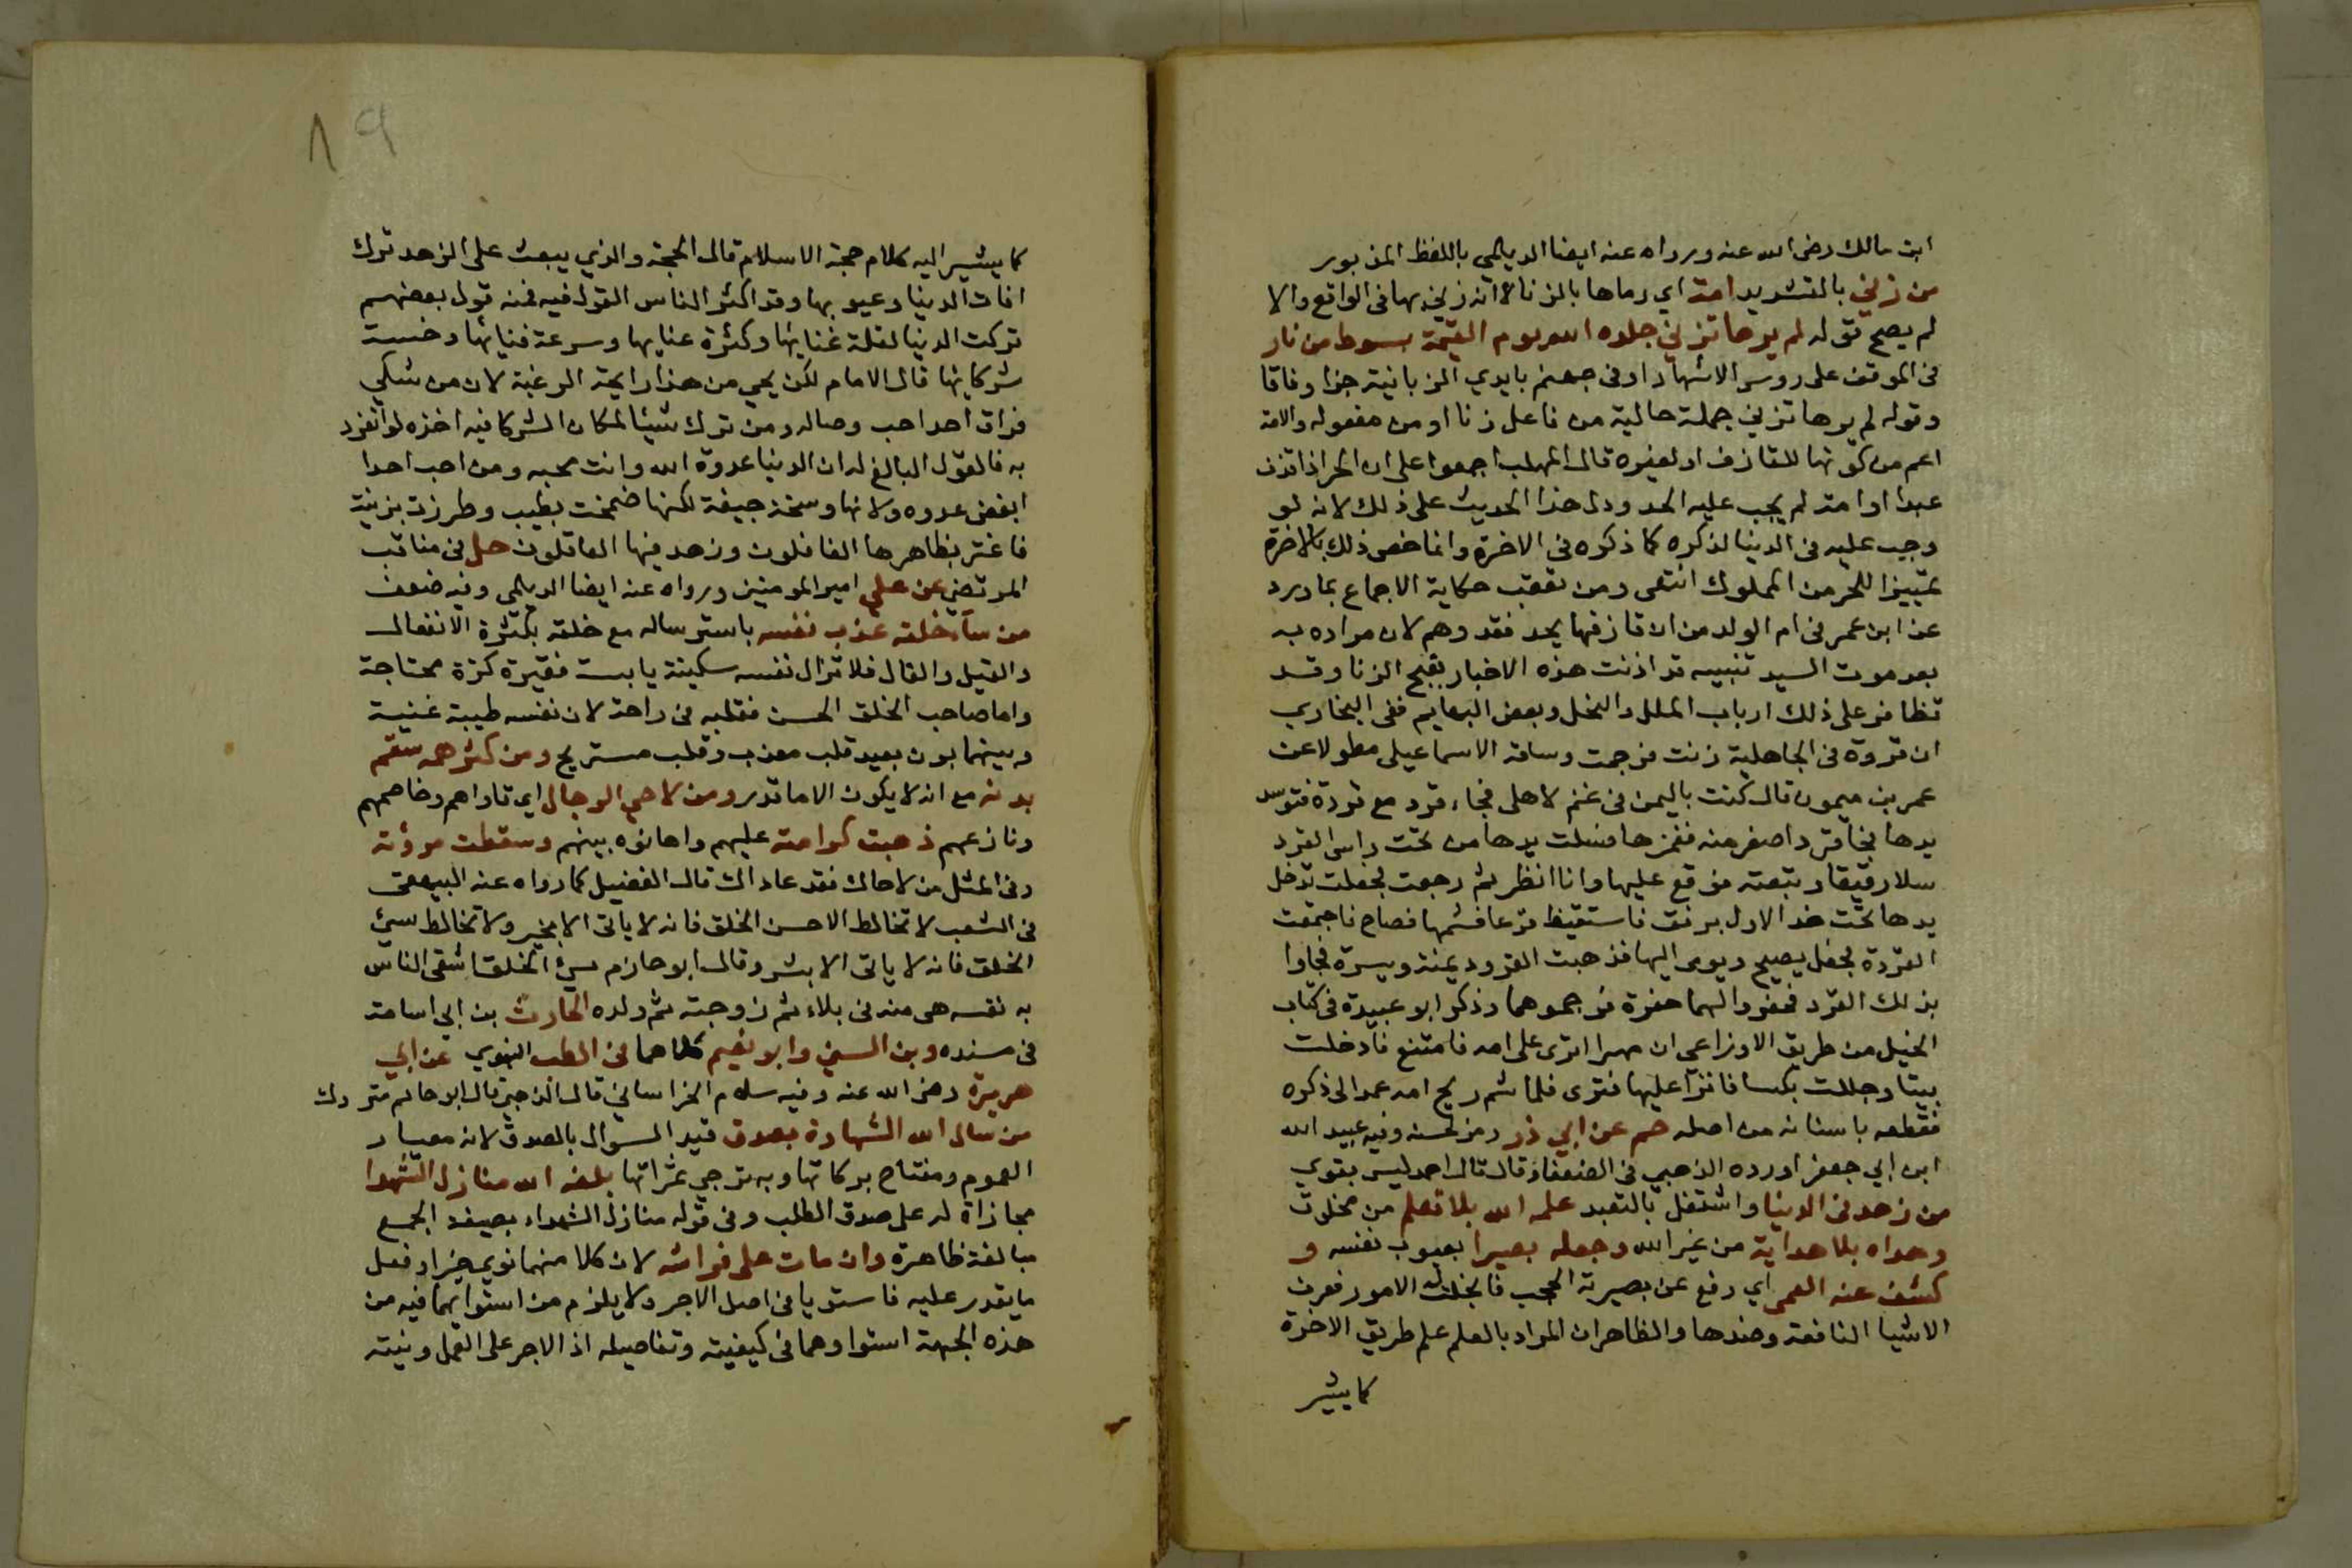 ابن مالك رضى الله عنه ورواه عنه ايضا الديلمى باللفظ المزبور
من زنى بالتشديد امة اي رماها بالزنا لا انه زنى بها فى الواقع والا
لم يصح قوله لم يرها تزني جلده الله يوم القيمة بسوط من نار
فى الموقف على روس الاشهاد او فى جهنم بايدي الزبانية جزا وفاقا
وقوله لم يرها تزني جملة حالية من فاعل زنا او من مفعوله والامة
اعم من كونها للقاذف او لغيره قال المهلب اجمعوا على ان الحر اذا قذف
عبدا او امة لم يجب عليه الحد ودل هذا الحديث على ذلك لانه لو
وجب عليه فى الدنيا لذكره كما ذكره فى الاخرة وانما خص ذلك بالاخرة
تمييزا للحر من المملوك انتهى ومن تعقب حكاية الاجماع بما ورد
عن ابن عمر فى ام الولد من ان قاذفها يحد فقد وهم لان مراده به
بعد موت السيد تنبيه قد اذنت هذه الاخبار بقبح الزنا وقد
تظافر على ذلك ارباب الملل والنحل وبعض البهايم ففى البخاري
ان قردة فى الجاهلية زنت فرجمت وساقه الاسماعيلى مطولا عن
عمر بن ميمون قال كنت باليمن فى غنم لاهلى فجاء قرد مع قردة فتوسد
يدها فجا قرد اصغر منه فغمزها فسلت يدها من تحت راس القرد
سلا رقيقا وتبعته فوقع عليها وانا انظر ثم رجعت فجعلت تدخل
يدها تحت خد الاول برفق فاستيقظ فزعا فشمها فصاح فاجتمعت
القردة فجعل يصيح ويومى اليها فذهبت القرود يمنة ويسرة فجاوا
بذلك القرد فحفروا لهما حفرة فرجموهما وذكر ابو عبيدة فى كتاب
الخيل من طريق الاوزاعي ان مهرا انزى على امه فامتنع فادخلت
بيتا وجللت بكسا فانزا عليها فنزى فلما شم ريح امه عمد الى ذكره
فقطعه باسنانه من اصله حم عن ابي ذر رمز لحسنه وفيه عبيد الله
ابن ابي جعفر اورده الذهبي فى الضعفا وقال قال احمد ليس بقوي
من زهد فى الدنيا واشتغل بالتعبد علمه الله بلا تعلم من مخلوق
وهداه بلا هداية من غير الله وجعله بصيرا بعيوب نفسه و
كشف عنه العمى اي رفع عن بصيرته الحجب فانجلت له الامور فعرف
الاشيا النافعة وضدها والظاهر ان المراد بالعلم علم طريق الاخرة
كما يشير
١٩
كما يشير اليه كلام حجة الاسلام قال الحجة والذي يبعث على الزهد ترك
افات الدنيا وعيوبها وقد اكثر الناس القول فيه فمنه قول بعضهم
تركت الدنيا لقلة غنايها وكثرة عنايها وسرعة فنائها وخسة
شركايها قال الامام لكن يجي من هذا رايحة الرغبة لان من شكي
فراق احد احب وصاله ومن ترك شيئا لمكان الشركا فيه اخذه لو انفرد
به فالقول البالغ له ان الدنيا عدوة الله وانت محبه ومن احب احدا
ابغض عدوه ولانها وسخة جيفة لكنها ضمخت بطيب وطرزت بزينة
فاغتر بظاهرها الغافلون وزهد فيها العاقلون حل فى مناقب
المرتضى عن علي امير المومنين ورواه عنه ايضا الديلمى وفيه ضعف
من سآء خلقه عذب نفسه باسترساله مع خلقه بكثرة الانفعال
والقيل والقال فلا تزال نفسه سكينة يابسة فقيرة كزة محتاجة
واما صاحب الخلق الحسن فقلبه فى راحة لان نفسه طيبة غنية
وبينهما بون بعيد قلب معذب وقلب مستريح ومن كثر همه سقم
بدنه مع انه لا يكون الا ما قدر ومن لاحى الرجال اي قاواهم وخاصمهم
ونازعهم ذهبت كرامته عليهم واهانوه بينهم وسقطت مروٌته
وفى المثل من لاحاك فقد عاداك قال الفضيل كما رواه عنه البيهقى
فى الشعب لا تخالط الا حسن الخلق فانه لا ياتى الا بخير ولا تخالط سيئ
الخلق فانه لا ياتى الا بشر وقال ابو حازم سيئ الخلق اشقى الناس
به نفسه هى منه فى بلاء ثم زوجته ثم ولده الحارث بن ابى اسامة
فى مسنده وبن السني وابو نعيم كلاهما فى الطب النبوي عن ابي
هريرة رضى الله عنه وفيه سلام الخراساني قال الذهبي قال ابو حاتم متروك
من سال الله الشهادة بصدق قيد السوال بالصدق لانه معيار
العموم ومفتاح بركاتها وبه ترجى ثمراتها بلغه الله منازل الشهدا
مجازاة له على صدق الطلب وفى قوله منازل الشهداء بصيغة الجمع
مبالغة ظاهرة وان مات على فراشه لان كلا منهما نوى خيرا وفعل
ما يقدر عليه فاستويا فى اصل الاجر ولا يلزم من استوايهما فيه من
هذه الجهة استواوهما فى كيفيته وتفاصيله اذ الاجر على العمل ونيته